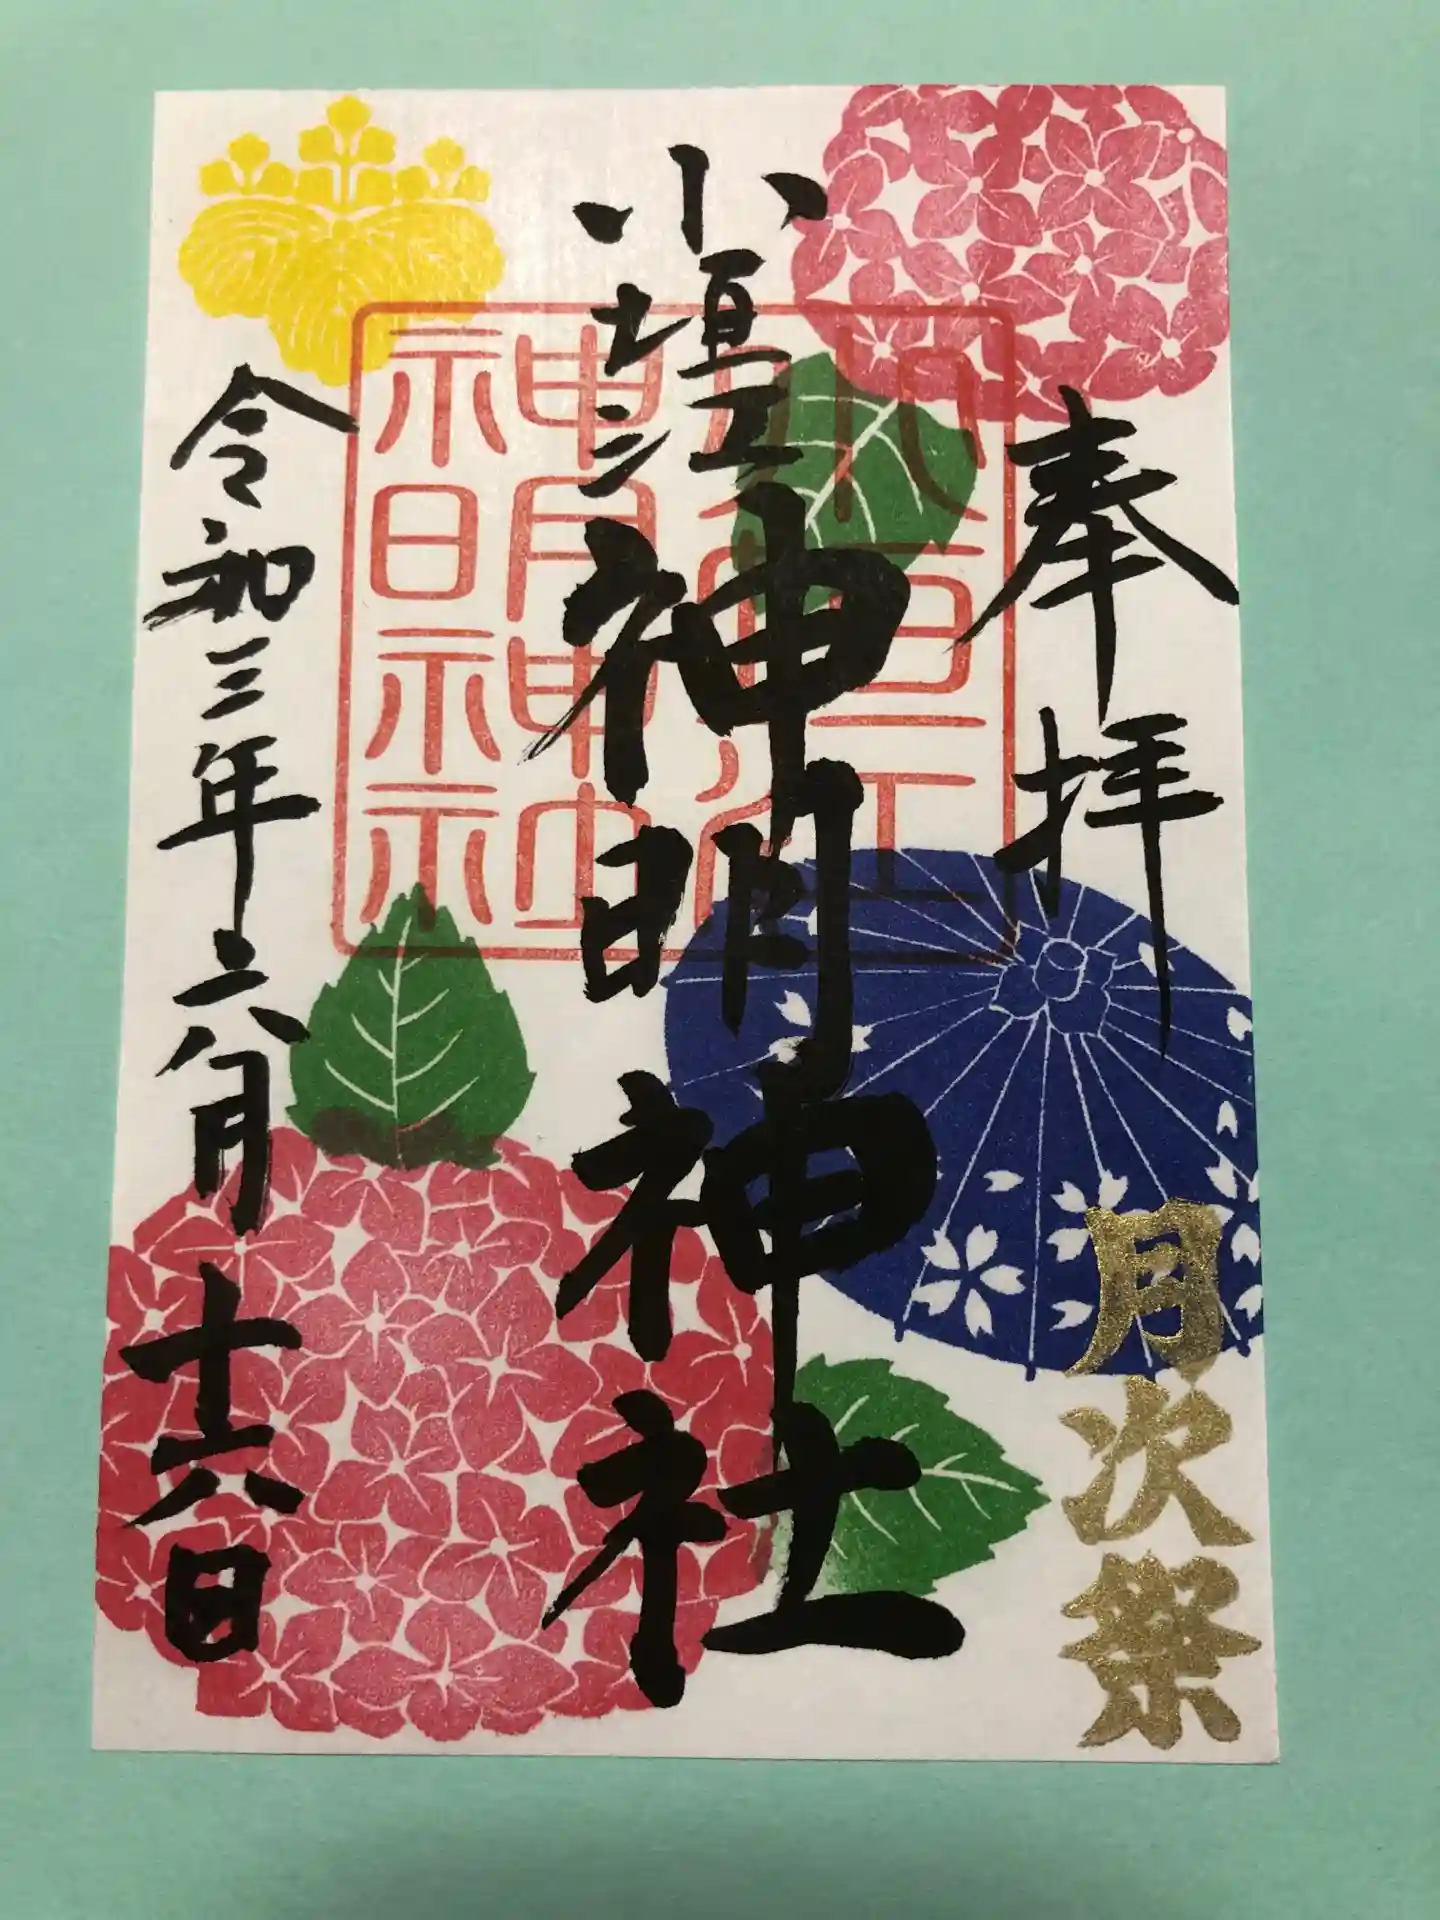 奉拝
月次祭
小垣江神明神社
小垣江
神明神社
令和三年六月十六日